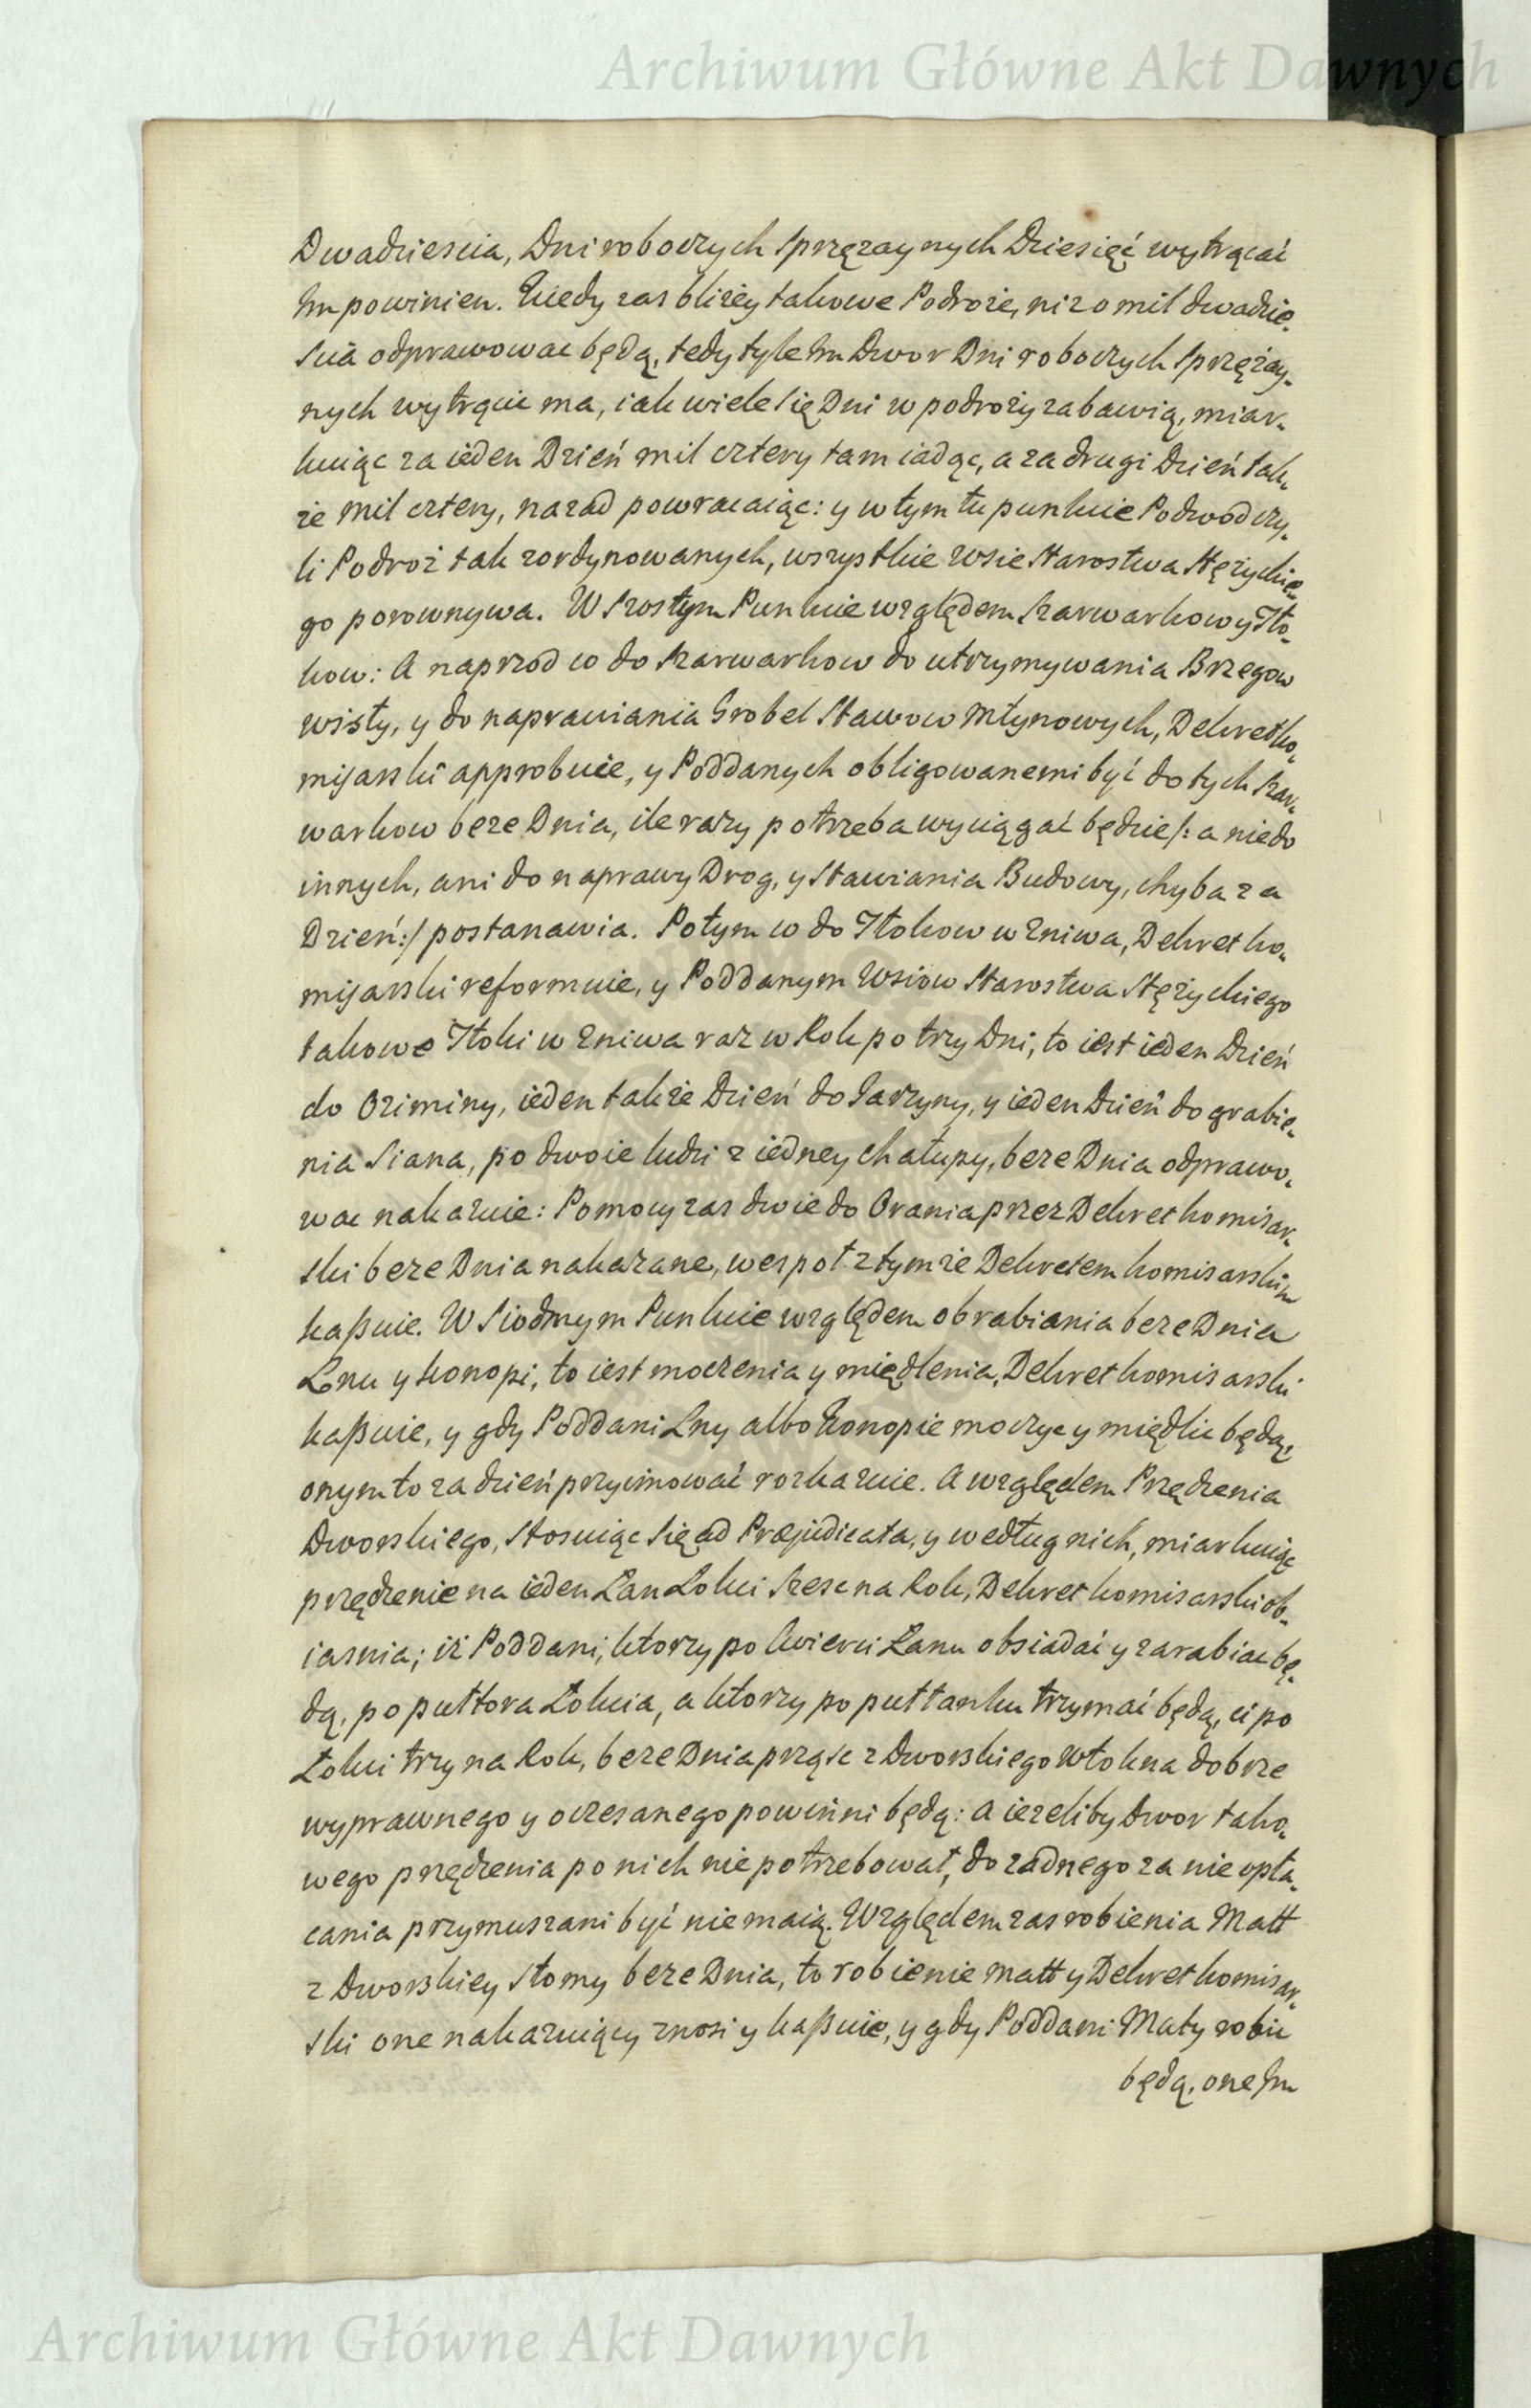 Archiwum Główne Akt Dawnych
Dwadziescia, Dni roboczych Sprzęzaynych Dziesięć wytrącać
Im powinien. Kiedy zas bliżey takowe Podroże, niz o mil dwadzie-
scia odprawować będą, tedy tyle Im Dwor Dni roboczych Sprzężay-
nych wytrącić ma, iak wiele się Dni w podroży zabawią, miar-
kuiąc za ieden Dzień mil cztery tam iadąc, a za drugi Dzień tak-
że mil cztery, nazad powracaiąc: y w tym tu punkcie Podwod czy-
li Podroż tak zordynowanych, wszystkie Wsie Starostwa Stężyckie-
go porownywa. W Szostym Punkcie względem Szarwarkow y Tło-
kow: A naprzod co do Szarwarkow do utrzymywania Brzegow
Wisły, y do naprawiania Grobel Stawow Młynowych, Dekret Ko-
mijarski approbuie, y Poddanych obligowanemi być do tych Szar-
warkow beze Dnia, ile razy potrzeba wyciągać będzie /: a nie do
innych, ani do naprawy Drog, y Stawiania Budowy, chyba za
Dzień :/ postanawia. Potym co do Tłokow w Zniwa, Dekret Ko-
mijarski reformuie, y Poddanym Wsiow Starostwa Stężyckiego
takowe Tłoki w Zniwa raz w Rok po trzy Dni, to iest ieden Dzień
do Oziminy, ieden także Dzień do Jarzyny, y ieden Dzień do grabie-
nia Siana, po dwoie ludzi z iedney chałupy, beze Dnia odprawo-
wać nakazuie: Pomocy zas dwie do Orania przez Dekret Komisar-
ski beze Dnia nakazane, wespoł z tymże Dekretem Komisarskim
kaßuie. W Siodmym Punkcie względem obrabiania beze Dnia
Lnu y Konopi, to iest moczenia y międlenia, Dekret Komisarski
kaßuie, y gdy Poddani Lny albo Konopie moczyć y międlić będą,
onym to za dzień przyimować rozkazuie. A względem Przędzenia
Dworskiego, stosuiąc się ad Præjudicata, y według nich, miarkuiąc
przędzenie na ieden Łan Łokci Szesc na Rok, Dekret Komisarski ob-
iasnia; iż Poddani, ktorzy po kwierci Łanu obsiadać y zarabiac bę-
dą, po puttora Łokcia, a ktorzy po puttanku trzymać będą, ci po
Łokci trzy na Rok, beze Dnia prząsc z Dworskiego Włokna dobrze
wyprawnego y oczesanego powinni będą: A ieżeliby Dwor tako-
wego przędzenia po nich nie potrzebował, do żadnego za nie opła-
cania przymuszani być nie maią. Względem zas robienia Matt
z Dworskiey Słomy beze Dnia, to robienie matt y Dekret Komisar-
ski one nakazuiący znosi y kaßuie, y gdy Poddani Maty robić
będą, one Im
Archiwum Główne Akt Dawnych